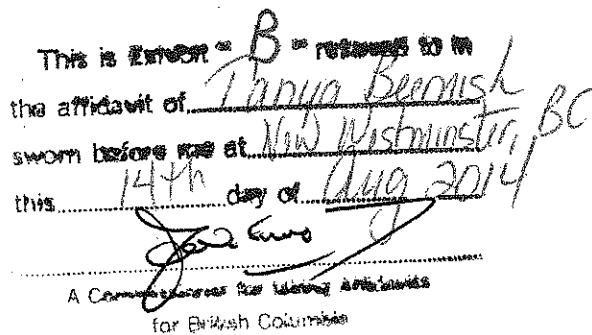 This is Exhibit " B " referred to in
the affidavit of Tanya Beemish
sworn before me at New Westminster, BC
this 14th day of Aug 2014
A Commissioner for taking Affidavits
for British Columbia